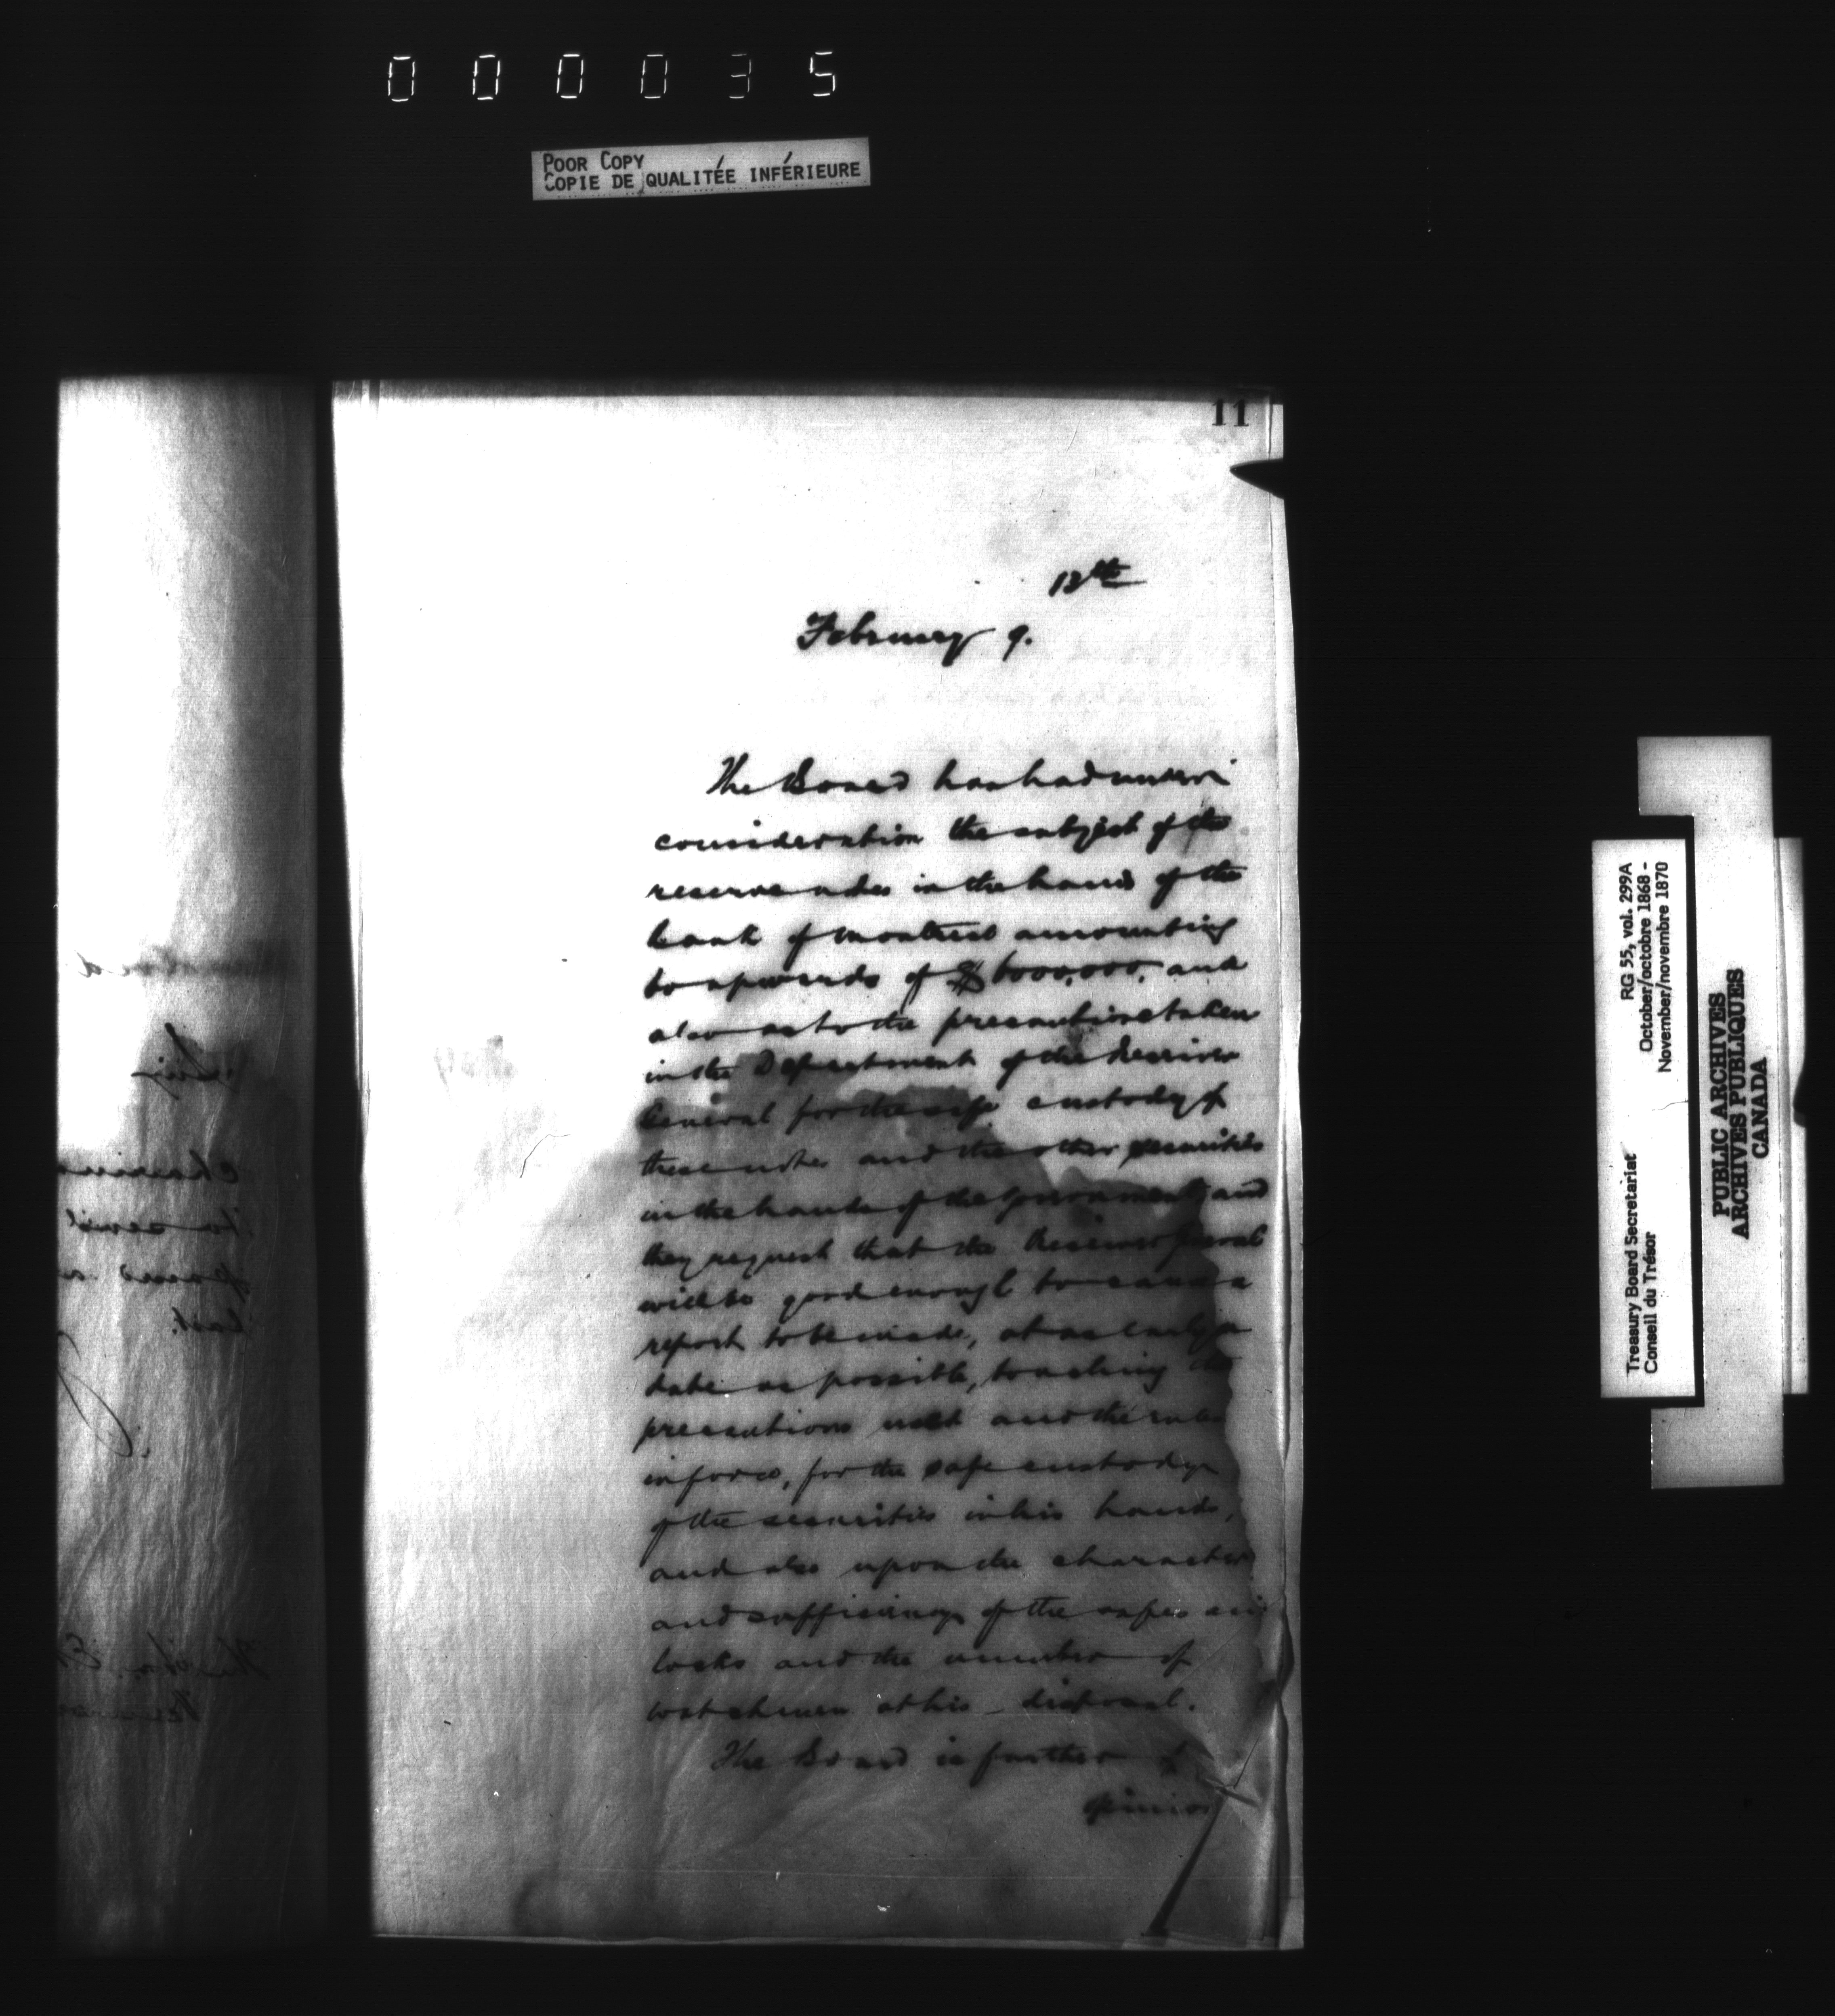 000035
POOR COPY
COPIE DE QUALITÉE INFÉRIEURE
11
13th
February 9.
The Board has had under
consideration the subject of the
reserve notes in the hands of the
bank of montreal amounting
to upwards of $6000,000, and
also as to the precautions taken
in the Department of the Receiver
General for the safe custody of
these notes and the other securities
in the hands of the Government, and
they request that the Receiver General
will be good enough to cause a
report to be made, at as early a
date as possible, touching the
precautions used and the rules
in force, for the safe custody
of the securities in his hands,
and also upon the character
and sufficiency of the safes and
locks and the number of
watchmen at his disposal.
The Board is further of
opinion
RG 55, vol. 299A
October/octobre 1868 -
November/novembre 1870
Treasury Board Secretariat
Conseil du Trésor
PUBLIC ARCHIVES
ARCHIVES PUBLIQUES
CANADA